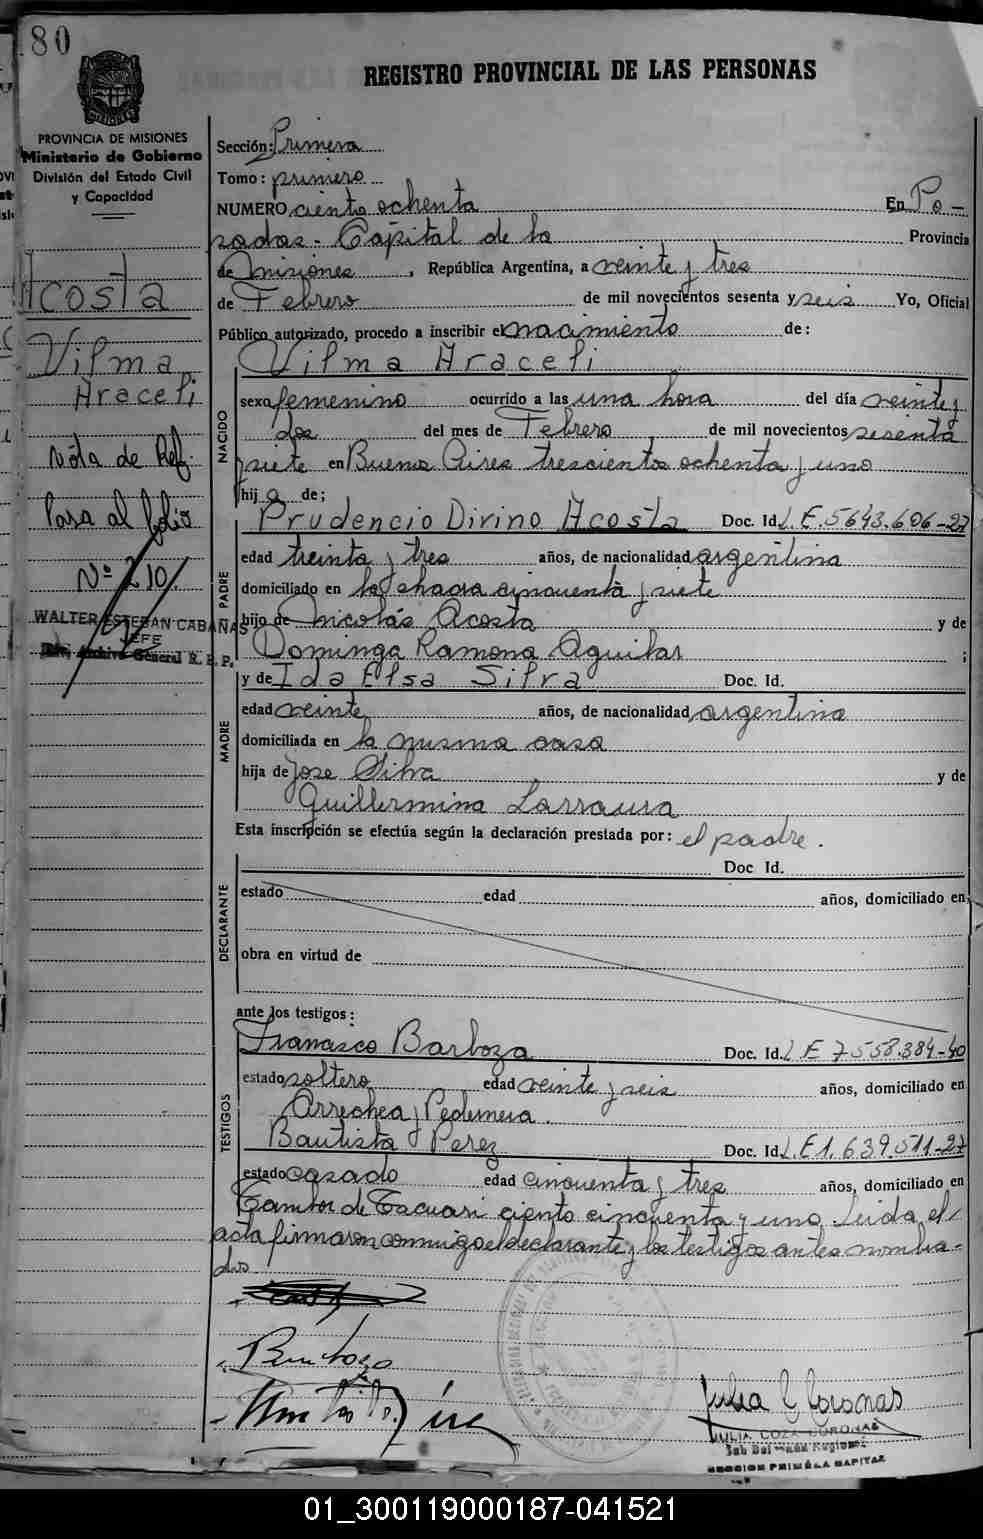 80
REGISTRO PROVINCIAL DE LAS PERSONAS
PROVINCIA DE MISIONES
Ministerio de Gobierno
División del Estado Civil
y Capacidad
Acosta
Vilma
Araceli
Nota de Ref.
Pasa al folio
Nº 210
WALTER ESTEBAN CABAÑAS
JEFE
Div. Archivo General R. P. P.
Sección: Primera
Tomo: primero
NUMERO ciento ochenta En Po-
sadas - Capital de la Provincia
de Misiones, República Argentina, a veinte y tres
de Febrero de mil novecientos sesenta y seis Yo, Oficial
Público autorizado, procedo a inscribir el nacimiento de:
NACIDO
Vilma Araceli
sexo femenino ocurrido a las una hora del día veinte y
dos del mes de Febrero de mil novecientos sesenta
y siete en Buenos Aires trescientos ochenta y uno
hija de;
PADRE
Prudencio Divino Acosta Doc. Id. L.E. 5643.606-27
edad treinta y tres años, de nacionalidad argentina
domiciliado en la chacra cincuenta y siete
hijo de Nicolás Acosta y de
Dominga Ramona Aguilar ;
MADRE
y de Ida Elsa Silva Doc. Id.
edad veinte años, de nacionalidad argentina
domiciliada en la misma casa
hija de Jose Silva y de
Guillermina Larraura
Esta inscripción se efectúa según la declaración prestada por: el padre.
DECLARANTE
Doc. Id.
estado edad años, domiciliado en
obra en virtud de
TESTIGOS
ante los testigos:
Francisco Barboza Doc. Id. L.E 7558.384-40
estado soltero edad veinte y seis años, domiciliado en
Arrechea y Pedernera.
Bautista Perez Doc. Id. L.E 1.639.511-27
estado casado edad cincuenta y tres años, domiciliado en
Tambor de Tacuari ciento cincuenta y uno Leida el
acta firmaron conmigo el declarante y los testigos antes nombra-
dos
Julia C Coronas
JULIA COZA CORONAS
SECCION PRIMERA CAPITAL
01_300119000187-041521